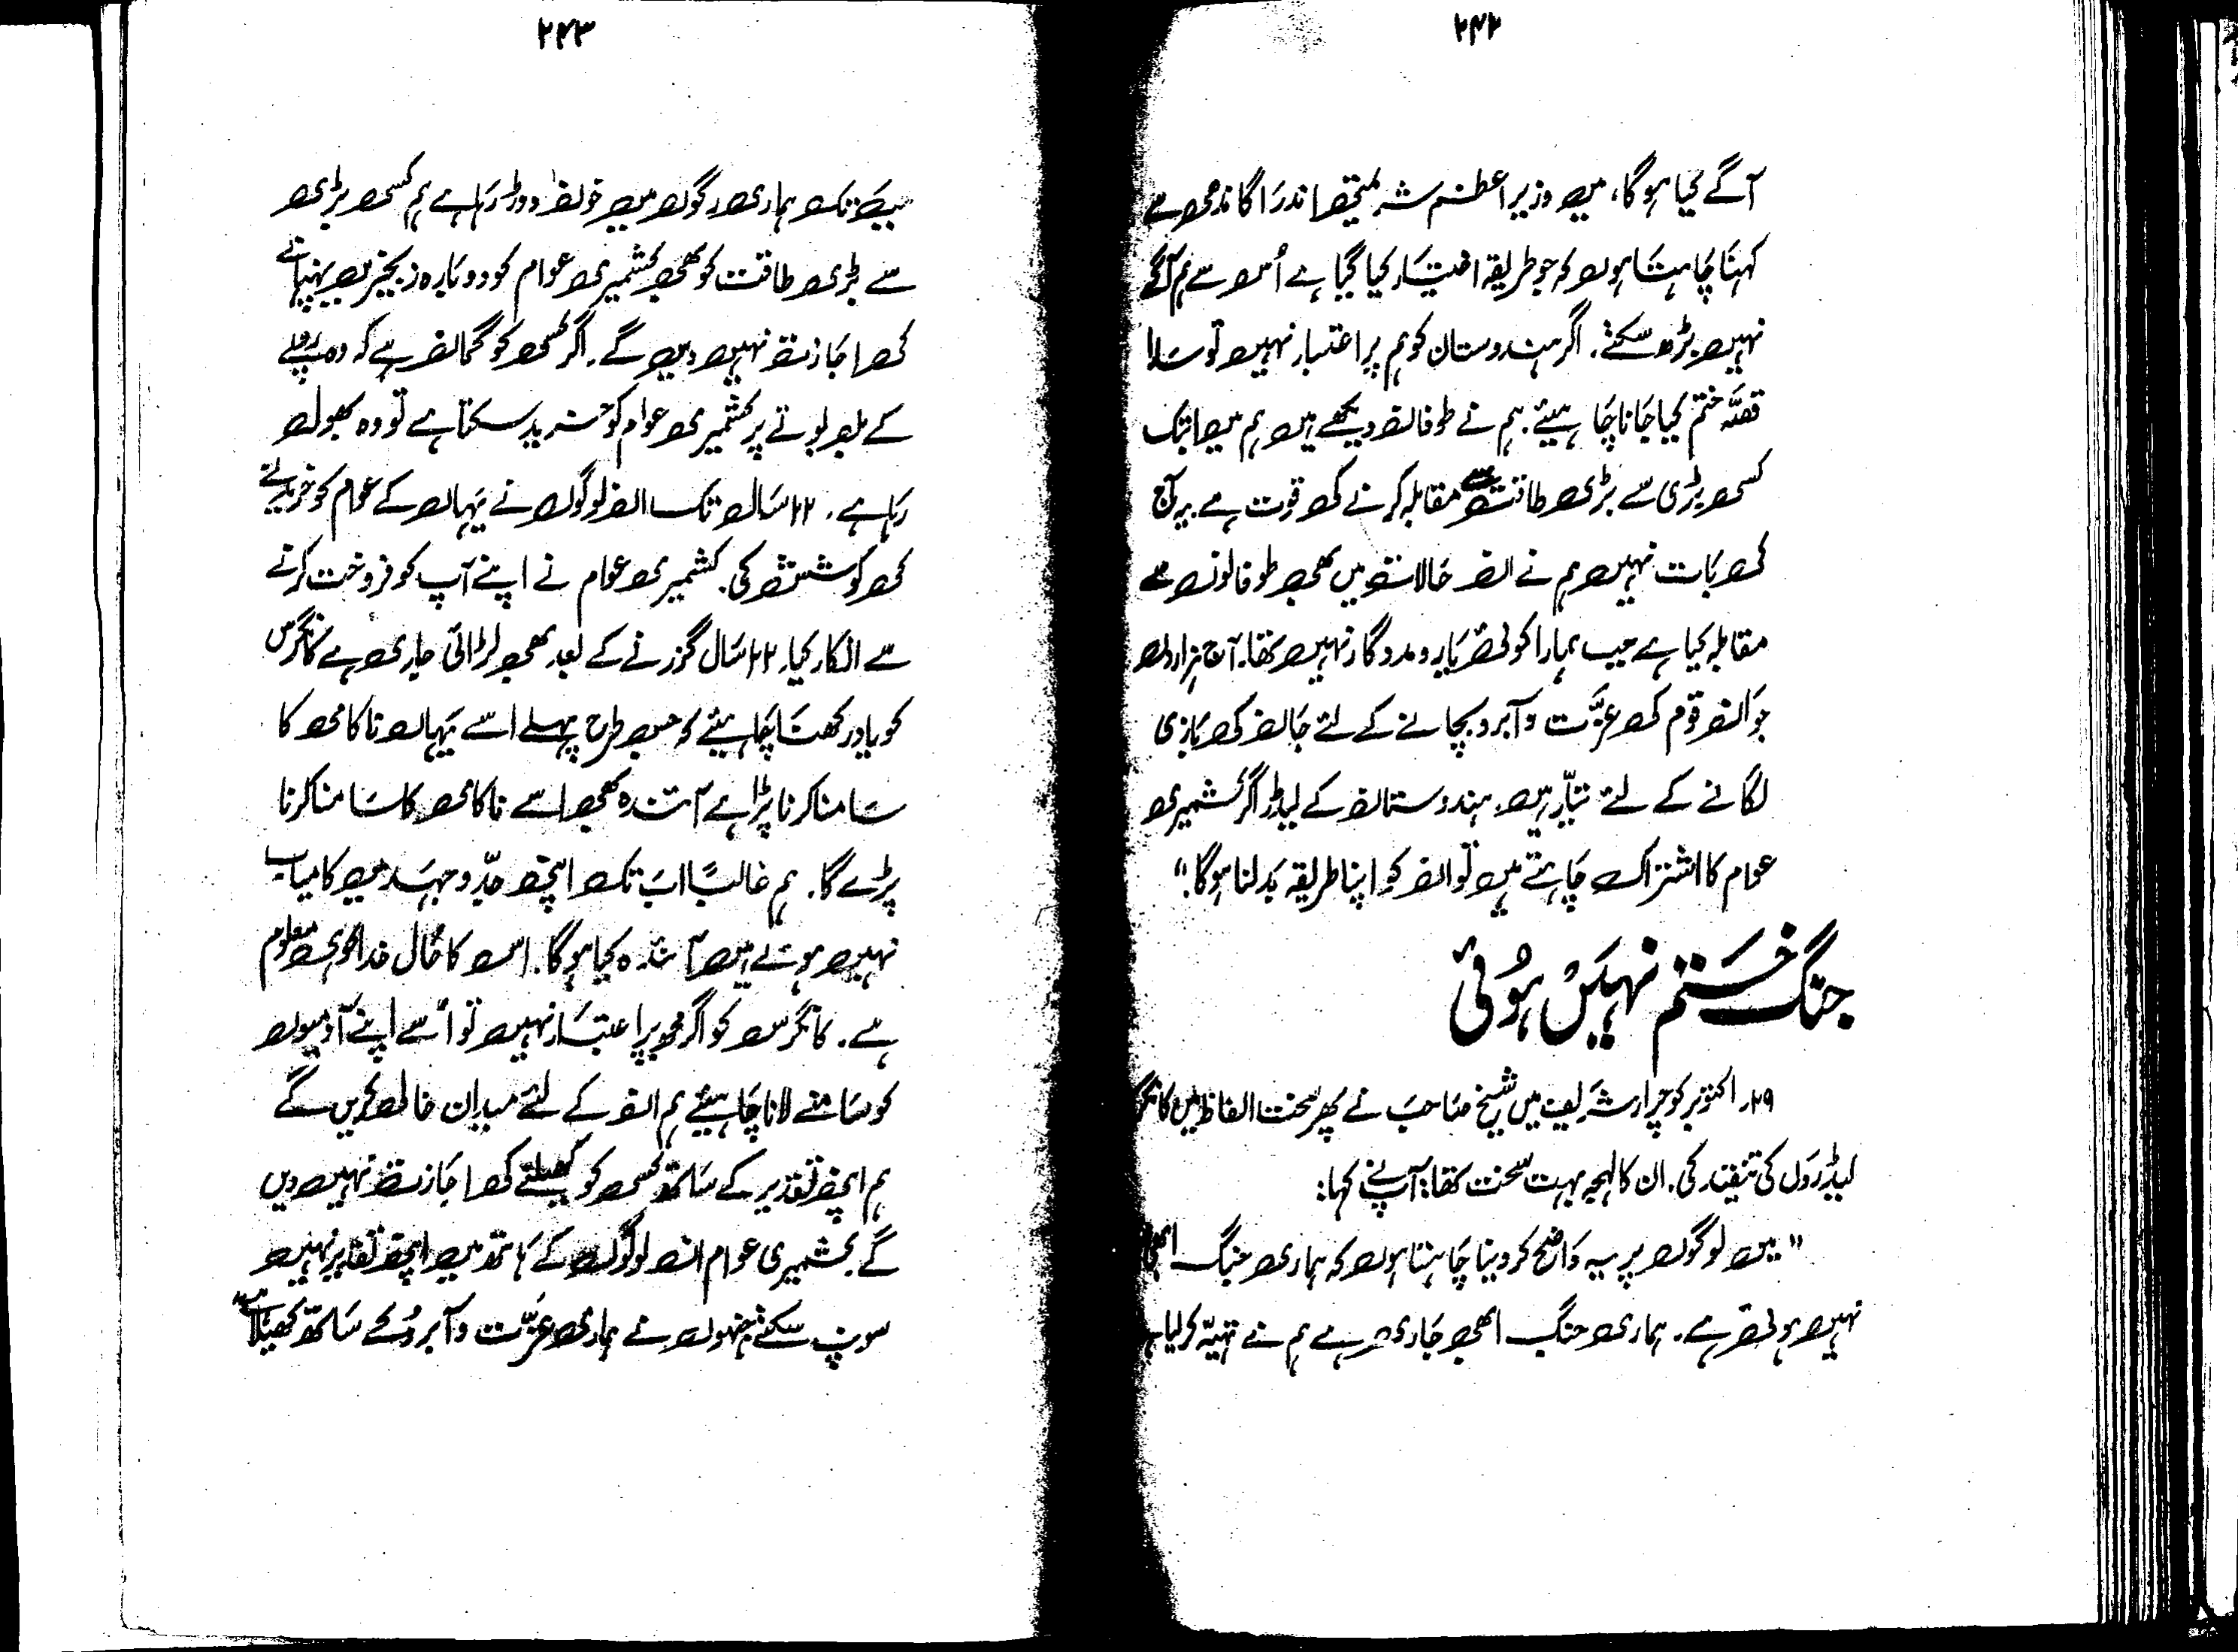 ۲۴۲
آگے کیا ہوگا، میں وزیر اعظم شریمتی اندرا گاندھی سے
کہنا چاہتا ہوں کہ جو طریقہ اختیار کیا گیا ہے اُس سے ہم آگے
نہیں بڑھ سکتے۔ اگر ہندوستان کو ہم پر اعتبار نہیں تو سارا
قصّہ ختم کیا جانا چاہیئے۔ ہم نے طوفان دیکھے ہیں ہم میں ابتک
کسی بڑی سے بڑی طاقت سے مقابلہ کرنے کی قوت ہے۔ یہ آج
کی بات نہیں ہم نے ان حالات میں بھی طوفانوں سے
مقابلہ کیا ہے جب ہمارا کوئی یار و مددگار نہیں تھا۔ آج ہزاروں
جوان قوم کی عزّت و آبرو بچانے کے لئے جان کی بازی
لگانے کے لئے تیّار ہیں۔ ہندوستان کے لیڈر اگر کشمیری
عوام کا اشتراک چاہتے ہیں تو ان کو اپنا طریقہ بدلنا ہوگا۔"
جنگ ختم نہیں ہُوئی
۲۹۔ اکتوبر کو چرار شریف میں شیخ صاحب نے پھر سخت الفاظ میں کانگرسی
لیڈروں کی تنقید کی۔ ان کا لہجہ بہت سخت تھا۔ آپ نے کہا:
"میں لوگوں پر یہ واضح کر دینا چاہتا ہوں کہ ہماری جنگ ابھی
نہیں ہوئی ہے۔ ہماری جنگ ابھی جاری ہے ہم نے تہیّہ کر لیا ہے
۲۴۳
جب تک ہماری رگوں میں خون دوڑ رہا ہے ہم کسی بڑی
سے بڑی طاقت کو بھی کشمیری عوام کو دوبارہ زنجیریں پہنانے
کی اجازت نہیں دیں گے۔ اگر کسی کو گمان ہے کہ وہ پیسے
کے بل بوتے پر کشمیری عوام کو خرید سکتا ہے تو وہ بھول
رہا ہے۔ ۲۲ سال تک ان لوگوں نے یہاں کے عوام کو خریدنے
کی کوشش کی۔ کشمیری عوام نے اپنے آپ کو فروخت کرنے
سے انکار کیا۔ ۲۲ سال گزرنے کے بعد بھی لڑائی جاری ہے کانگرس
کو یاد رکھنا چاہیئے کہ جس طرح پہلے اسے یہاں ناکامی کا
سامنا کرنا پڑا ہے آئندہ بھی اسے ناکامی کا سامنا کرنا
پڑے گا۔ ہم غالباً اب تک اپنی جدّوجہد میں کامیاب
نہیں ہوئے ہیں آئندہ کیا ہوگا۔ اس کا حال خدا کو ہی معلوم
ہے۔ کانگرس کو اگر مجھ پر اعتبار نہیں تو اُسے اپنے آدمیوں
کو سامنے لانا چاہیئے ہم ان کے لئے میدان خالی کریں گے
ہم اپنی تقدیر کے ساتھ کسی کو کھیلنے کی اجازت نہیں دیں
گے کشمیری عوام ان لوگوں کے ہاتھ میں اپنی تقدیر نہیں
سونپ سکتے جنہوں نے ہماری عزّت و آبرو کے ساتھ کھیلا ہے۔